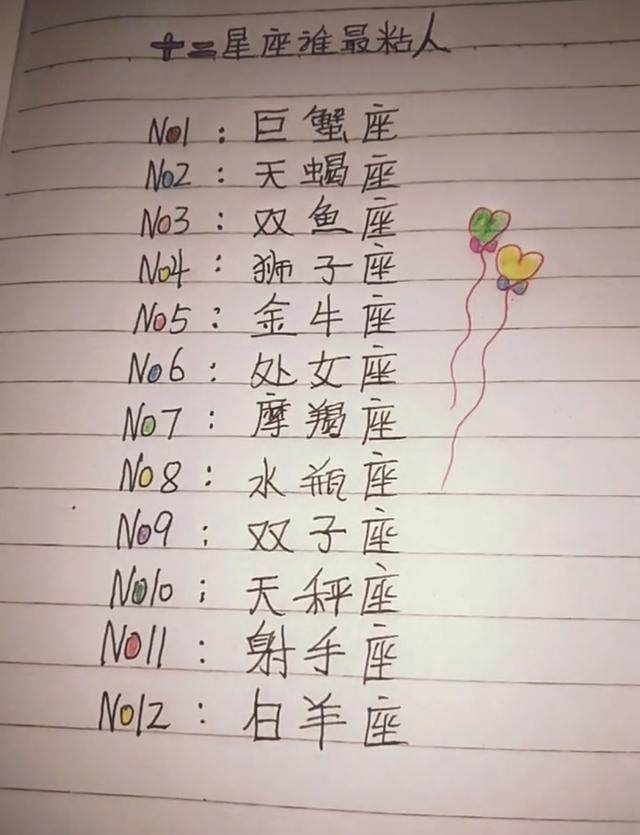 十二星座谁最粘人
No1：巨蟹座
No2：天蝎座
No3：双鱼座
No4：狮子座
No5：金牛座
No6：处女座
No7：摩羯座
No8：水瓶座
No9：双子座
No10：天秤座
No11：射手座
No12：白羊座